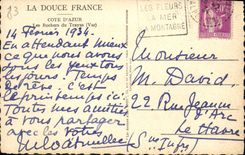 83
LA DOUCE FRANCE
COTE D'AZUR
Les Rochers du Trayas (Var)
14 février 1934.
En attendant mieux
que nous avons
sous les yeux tous
les jours. Temps
de rêve. C'est
le printemps ici
Mes amitiés
à vous partager
avec les vôtres
LES FLEURS
LA MER
MONTAGNE
Monsieur
M. David,
22 Rue Jeanne
d'Arc
Le Havre
Sne Infre